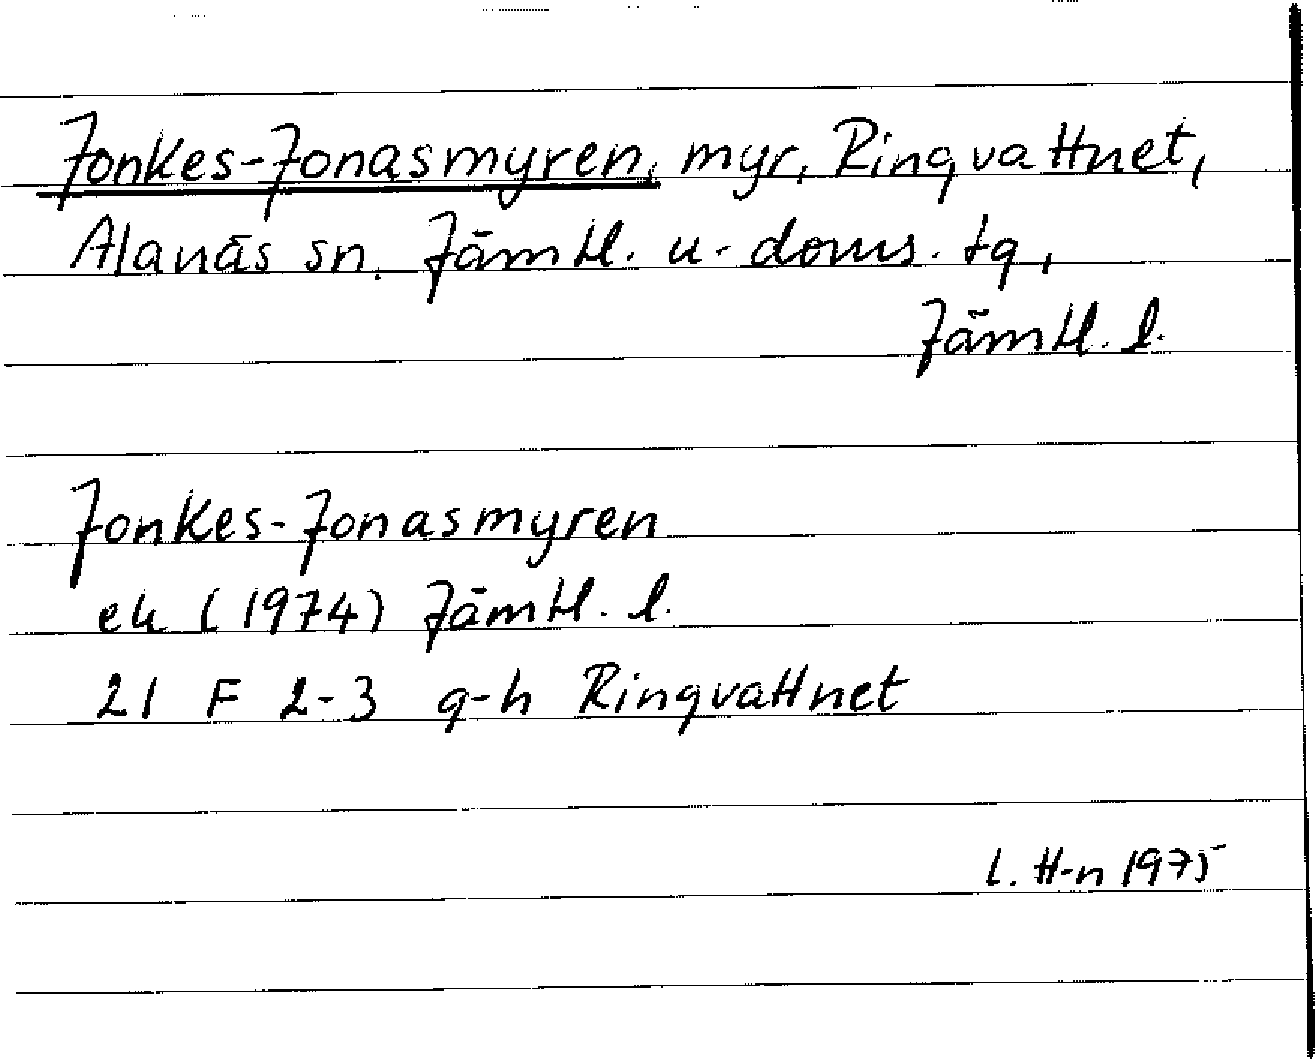 Jonkes-Jonasmyren, myr, Ringvattnet,
Alanäs sn. Jämtl. u. doms. tg,
Jämtl. l.
Jonkes-Jonasmyren
ek (1974) Jämtl. l.
21 F 2-3 g-h Ringvattnet
L. H-n 1975